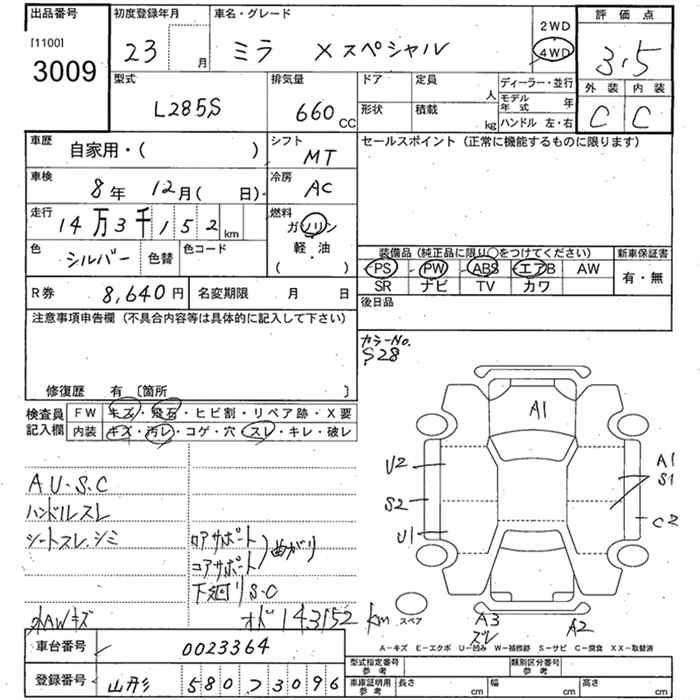 出品番号
[1100]
3009
初度登録年月
23 月
車名・グレード
ミラ Xスペシャル
2WD
4WD
評価点
3.5
外装 内装
C C
型式
L285S
排気量
660 CC
ドア 定員
人
形状 積載
kg
ディーラー・並行
モデル年式 年
ハンドル 左・右
車歴
自家用・( )
シフト
MT
セールスポイント (正常に機能するものに限ります)
車検
8年 12月( 日)
冷房
AC
走行
14万3千152km
燃料
ガソリン
軽・油
( ・ )
色
シルバー
色替
色コード
装備品 (純正品に限り○をつけてください)
新車保証書
PS PW ABS エアB AW
有・無
SR ナビ TV カワ
R券 8,640円
名変期限 月 日
後日品
注意事項申告欄 (不具合内容等は具体的に記入して下さい)
修復歴 有 〔箇所 〕
カラーNo.
S28
検査員記入欄
FW キズ・飛石・ヒビ割・リペア跡・X要
内装 キズ・汚レ・コゲ・穴・スレ・キレ・破レ
AU・S.C
ハンドルスレ
シートスレ.シミ
ロアサポート
コアサポート
曲がり
下廻りS・C
AWキズ
オド143152km
A1
U2
S2
U1
A1
S1
C2
スペア
A3
ズレ
A2
A-キズ E-エクボ U-凹み W-補修跡 S-サビ C-腐食 XX-取替済
車台番号
0023364
登録番号
山形 580 ス 3096
型式指定番号 参考
類別区分番号 参考
車庫証明用 参考
長さ cm
幅 cm
高さ cm